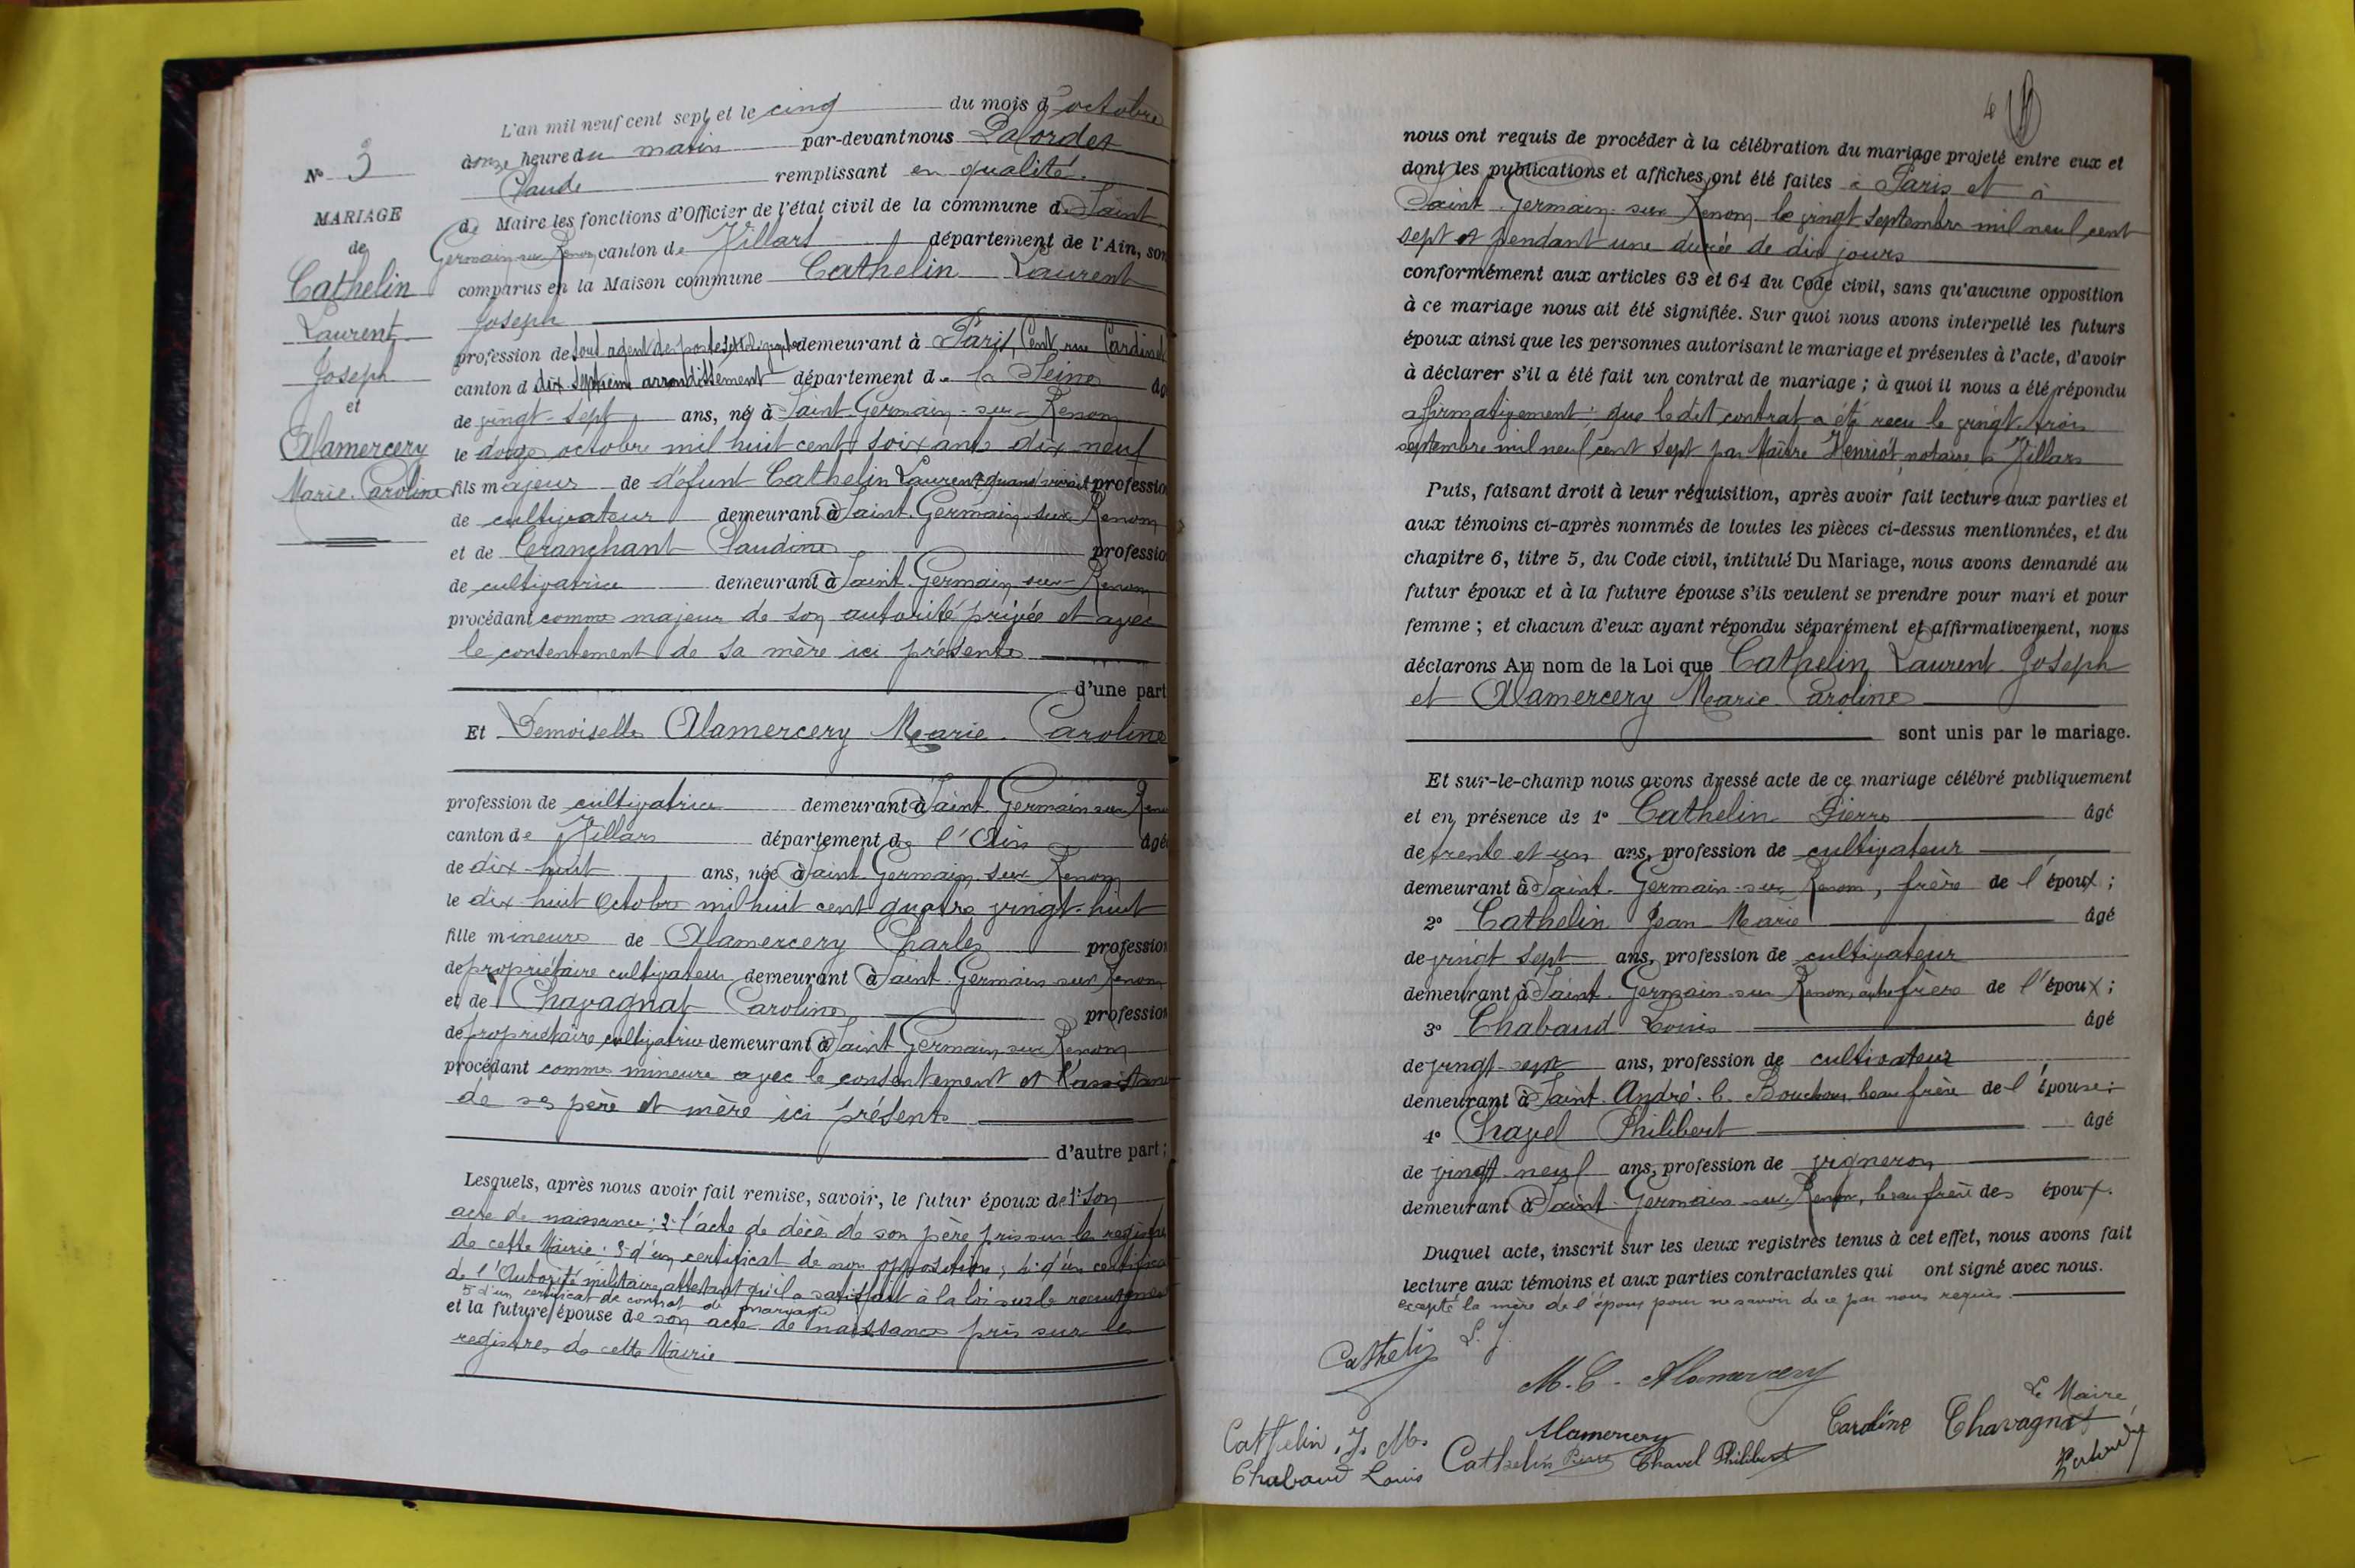 L'an mil neuf cent sept et le cinq du mois d'octobre
à onze heure du matin par-devant nous Palordet
Claude remplissant en qualité
de Maire les fonctions d'Officier de l'état civil de la commune de Saint
Germain sur Renon, canton de Villars département de l'Ain, son
comparus en la Maison commune Cathelin Laurent
Joseph
profession de sous agent des postes et télégraphes demeurant à Paris, Cent, rue Cardinet
canton d dix septième arrondissement département de la Seine âg
de vingt-sept ans, né à Saint-Germain-sur-Renon
le douze octobre mil huit cent soixante dix-neuf
fils majeur de défunt Cathelin Laurent quand vivait professio
de cultivateur demeurant à Saint-Germain-sur-Renon
et de Tranchant Claudine professio
de cultivatrice demeurant à Saint-Germain-sur-Renon
procédant comme majeur de son autorité privée et avec
le consentement de sa mère ici présente
d'une part
N° 3
MARIAGE
de
Cathelin
Laurent
Joseph
et
Alamercery
Marie-Caroline
Et Demoiselle Alamercery Marie-Caroline
profession de cultivatrice demeurant à Saint-Germain-sur-Renon
canton de Villars département de l'Ain âgé
de dix-huit ans, née à Saint-Germain-sur-Renon
le dix huit Octobre mil huit cent quatre vingt-huit
fille mineure de Alamercery Charles profession
de propriétaire cultivateur demeurant à Saint-Germain-sur-Renon
et de Chavagnat Caroline profession
de propriétaire cultivatrice demeurant à Saint-Germain-sur-Renon
procédant comme mineure avec le consentement et l'assistan
de ses père et mère ici présents
d'autre part ;
Lesquels, après nous avoir fait remise, savoir, le futur époux de 1° Son
acte de naissance ; 2° l'acte de décès de son père pris sur les registres
de cette Mairie ; 3° d'un certificat de non opposition ; 4° d'un certificat
de l'Autorité militaire attestant qu'il a satisfait à la loi sur le recrutement
5° d'un certificat de contrat de mariage
et la future épouse de son acte de naissance pris sur les
registres de cette Mairie
4
nous ont requis de procéder à la célébration du mariage projeté entre eux et
dont les publications et affiches ont été faites à Paris et à
Saint-Germain-sur-Renon le vingt septembre mil neuf cent
sept et pendant une durée de dix jours
conformément aux articles 63 et 64 du Code civil, sans qu'aucune opposition
à ce mariage nous ait été signifiée. Sur quoi nous avons interpellé les futurs
époux ainsi que les personnes autorisant le mariage et présentes à l'acte, d'avoir
à déclarer s'il a été fait un contrat de mariage ; à quoi il nous a été répondu
affirmativement : que le dit contrat a été reçu le vingt-trois
septembre mil neuf cent sept par Maître Henriot, notaire à Villars
Puis, faisant droit à leur réquisition, après avoir fait lecture aux parties et
aux témoins ci-après nommés de toutes les pièces ci-dessus mentionnées, et du
chapitre 6, titre 5, du Code civil, intitulé Du Mariage, nous avons demandé au
futur époux et à la future épouse s'ils veulent se prendre pour mari et pour
femme ; et chacun d'eux ayant répondu séparément et affirmativement, nous
déclarons Au nom de la Loi que Cathelin Laurent-Joseph
et Alamercery Marie-Caroline
sont unis par le mariage.
Et sur-le-champ nous avons dressé acte de ce mariage célébré publiquement
et en présence de 1° Cathelin Pierre âgé
de trente et un ans, profession de cultivateur
demeurant à Saint-Germain-sur-Renon, frère de l'époux ;
2° Cathelin Jean-Marie âgé
de vingt sept ans, profession de cultivateur
demeurant à Saint-Germain-sur-Renon, autre frère de l'époux ;
3° Chabaud Louis âgé
de vingt-sept ans, profession de cultivateur
demeurant à Saint-André-l. Bouchoux beau frère de l'épouse ;
4° Chavel Philibert âgé
de vingt-neuf ans, profession de vigneron
demeurant à Saint-Germain-sur-Renon, beau frère des époux.
Duquel acte, inscrit sur les deux registres tenus à cet effet, nous avons fait
lecture aux témoins et aux parties contractantes qui ont signé avec nous.
excepté la mère de l'époux pour ne savoir de ce par nous requis.
Cathelin L. J.
M. C. Alamercery
Le Maire
Cathelin, J. M. Alamercery Caroline Chavagnat
Chabaud Louis Cathelin Pierre Chavel Philibert